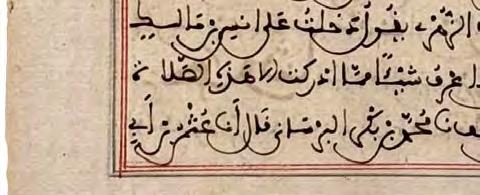 الزهري يقول دخلت على انس بن مالك
اعرف شيئا مما ادركت الا هذه الصلاة
محمد بن بكر البرساني قال أنا عثمن بن أبي